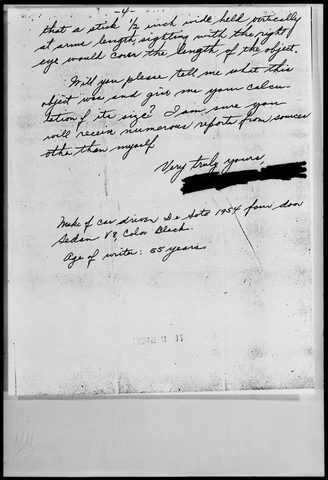 -4-
that a stick 1/2 inch wide held vertically
at arms length, sighting with the right
eye would cover the length of the object.
Will you please tell me what this
object was and give me your calcu-
lation of its size? I am sure you
will receive numerous reports from sources
other than myself.
Very truly yours,
Make of car driven De Soto 1954 four door
Sedan V8, Color Black.
Age of writer: 55 years.